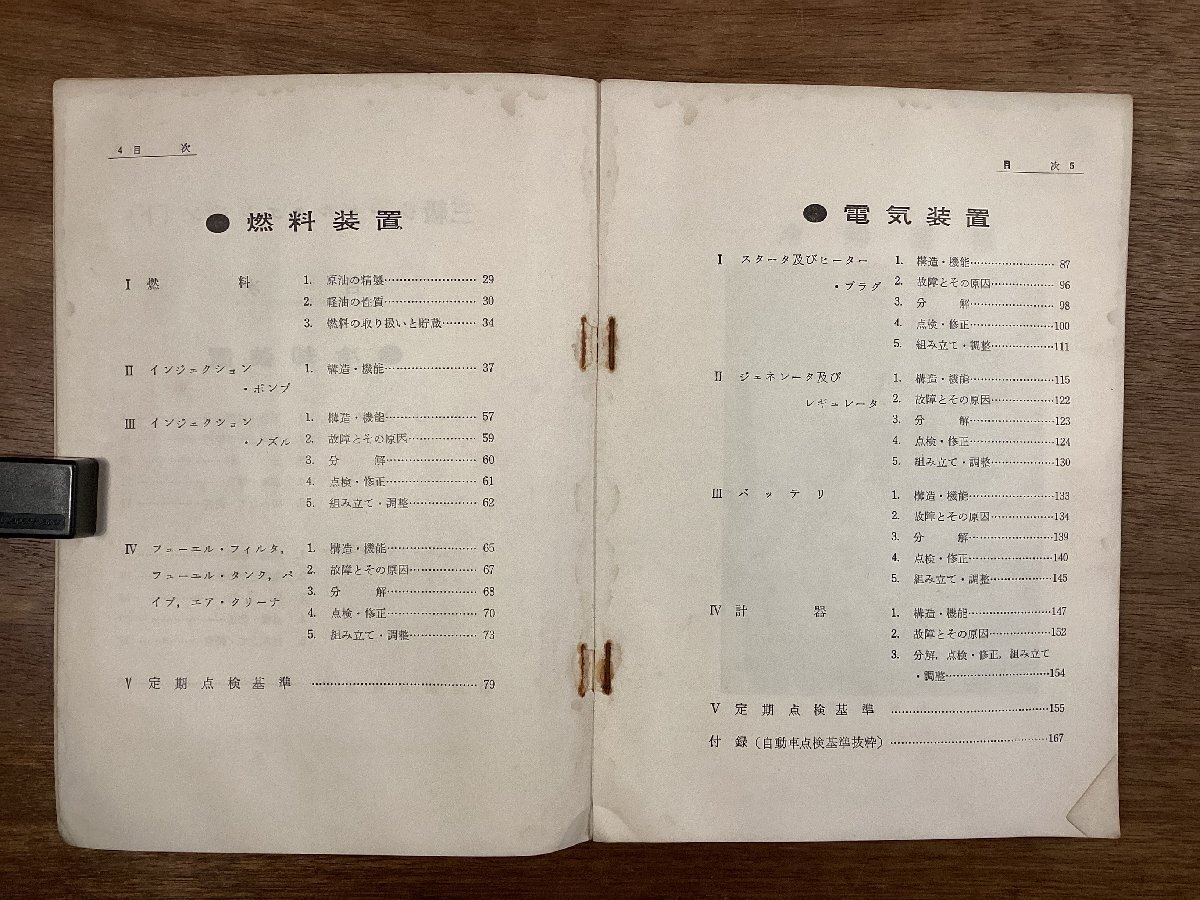 4 目 次
● 燃料装置
Ⅰ 燃 料 1. 原油の精製………………… 29
2. 軽油の性質………………… 30
3. 燃料の取り扱いと貯蔵……… 34
Ⅱ インジェクション 1. 構造・機能………………… 37
・ポンプ
Ⅲ インジェクション 1. 構造・機能………………… 57
・ノズル 2. 故障とその原因…………… 59
3. 分 解………………… 60
4. 点検・修正………………… 61
5. 組み立て・調整…………… 62
Ⅳ フューエル・フィルタ, 1. 構造・機能………………… 65
フューエル・タンク, パ 2. 故障とその原因…………… 67
イプ, エア・クリーナ 3. 分 解………………… 68
4. 点検・修正………………… 70
5. 組み立て・調整…………… 73
Ⅴ 定期点検基準 ………………………………… 79
目 次 5
● 電気装置
Ⅰ スタータ及びヒーター 1. 構造・機能………………… 87
・プラグ 2. 故障とその原因…………… 96
3. 分 解………………… 98
4. 点検・修正…………………100
5. 組み立て・調整……………111
Ⅱ ジェネレータ及び 1. 構造・機能…………………115
レギュレータ 2. 故障とその原因……………122
3. 分 解…………………123
4. 点検・修正…………………124
5. 組み立て・調整……………130
Ⅲ バッテリ 1. 構造・機能…………………133
2. 故障とその原因……………134
3. 分 解…………………139
4. 点検・修正…………………140
5. 組み立て・調整……………145
Ⅳ 計 器 1. 構造・機能…………………147
2. 故障とその原因……………152
3. 分解, 点検・修正, 組み立て
・調整………………………154
Ⅴ 定期点検基準 …………………………………155
付 録 (自動車点検基準抜粋) …………………………………167